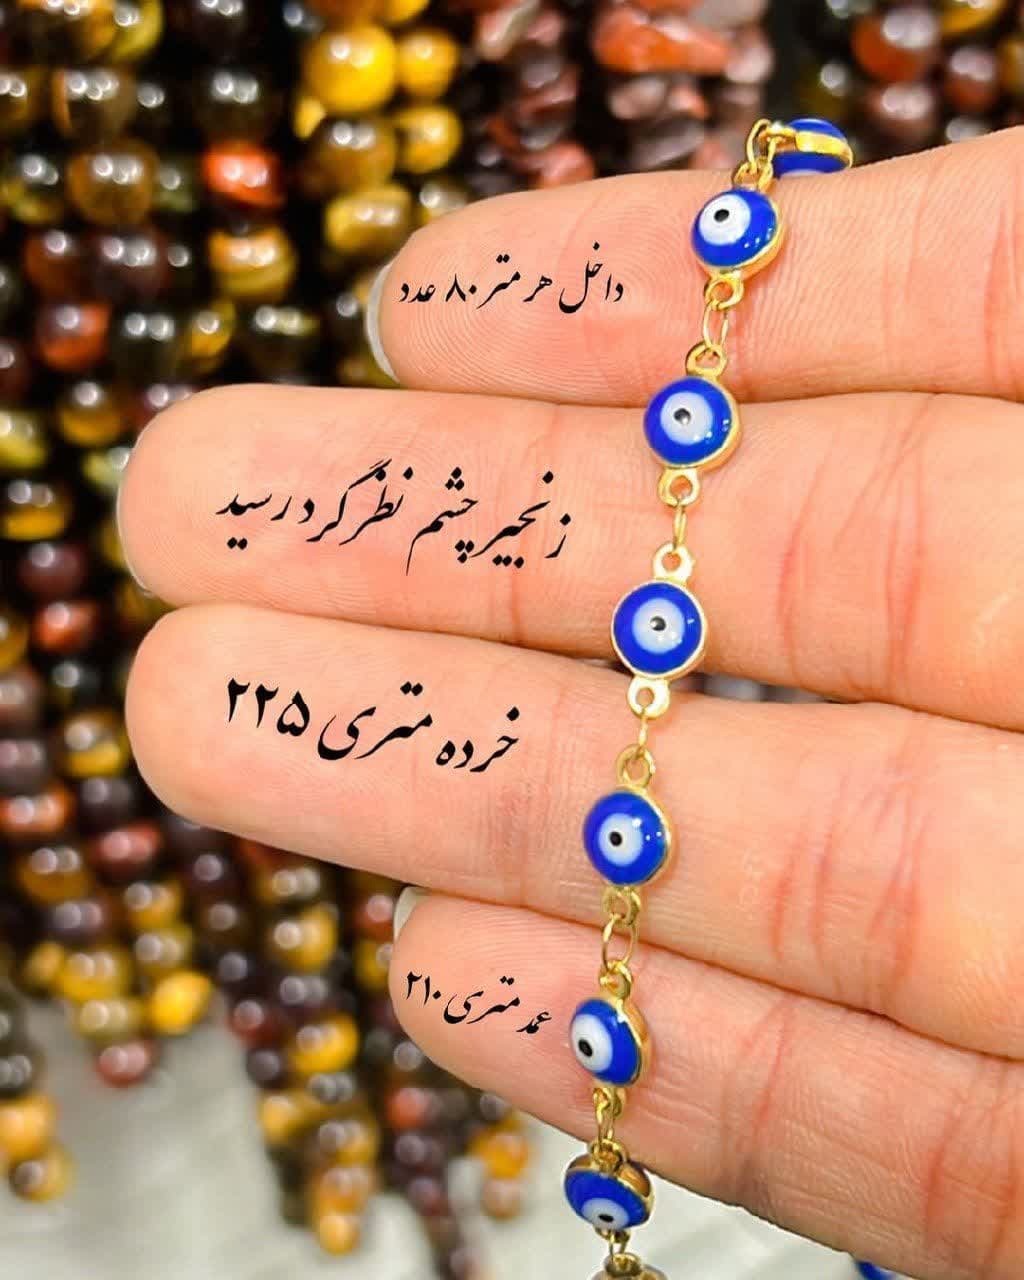 داخل هر متر ۸۰ عدد
زنجیر چشم نظر گرد رسید
خرده متری ۲۲۵
عمد متری ۲۱۰